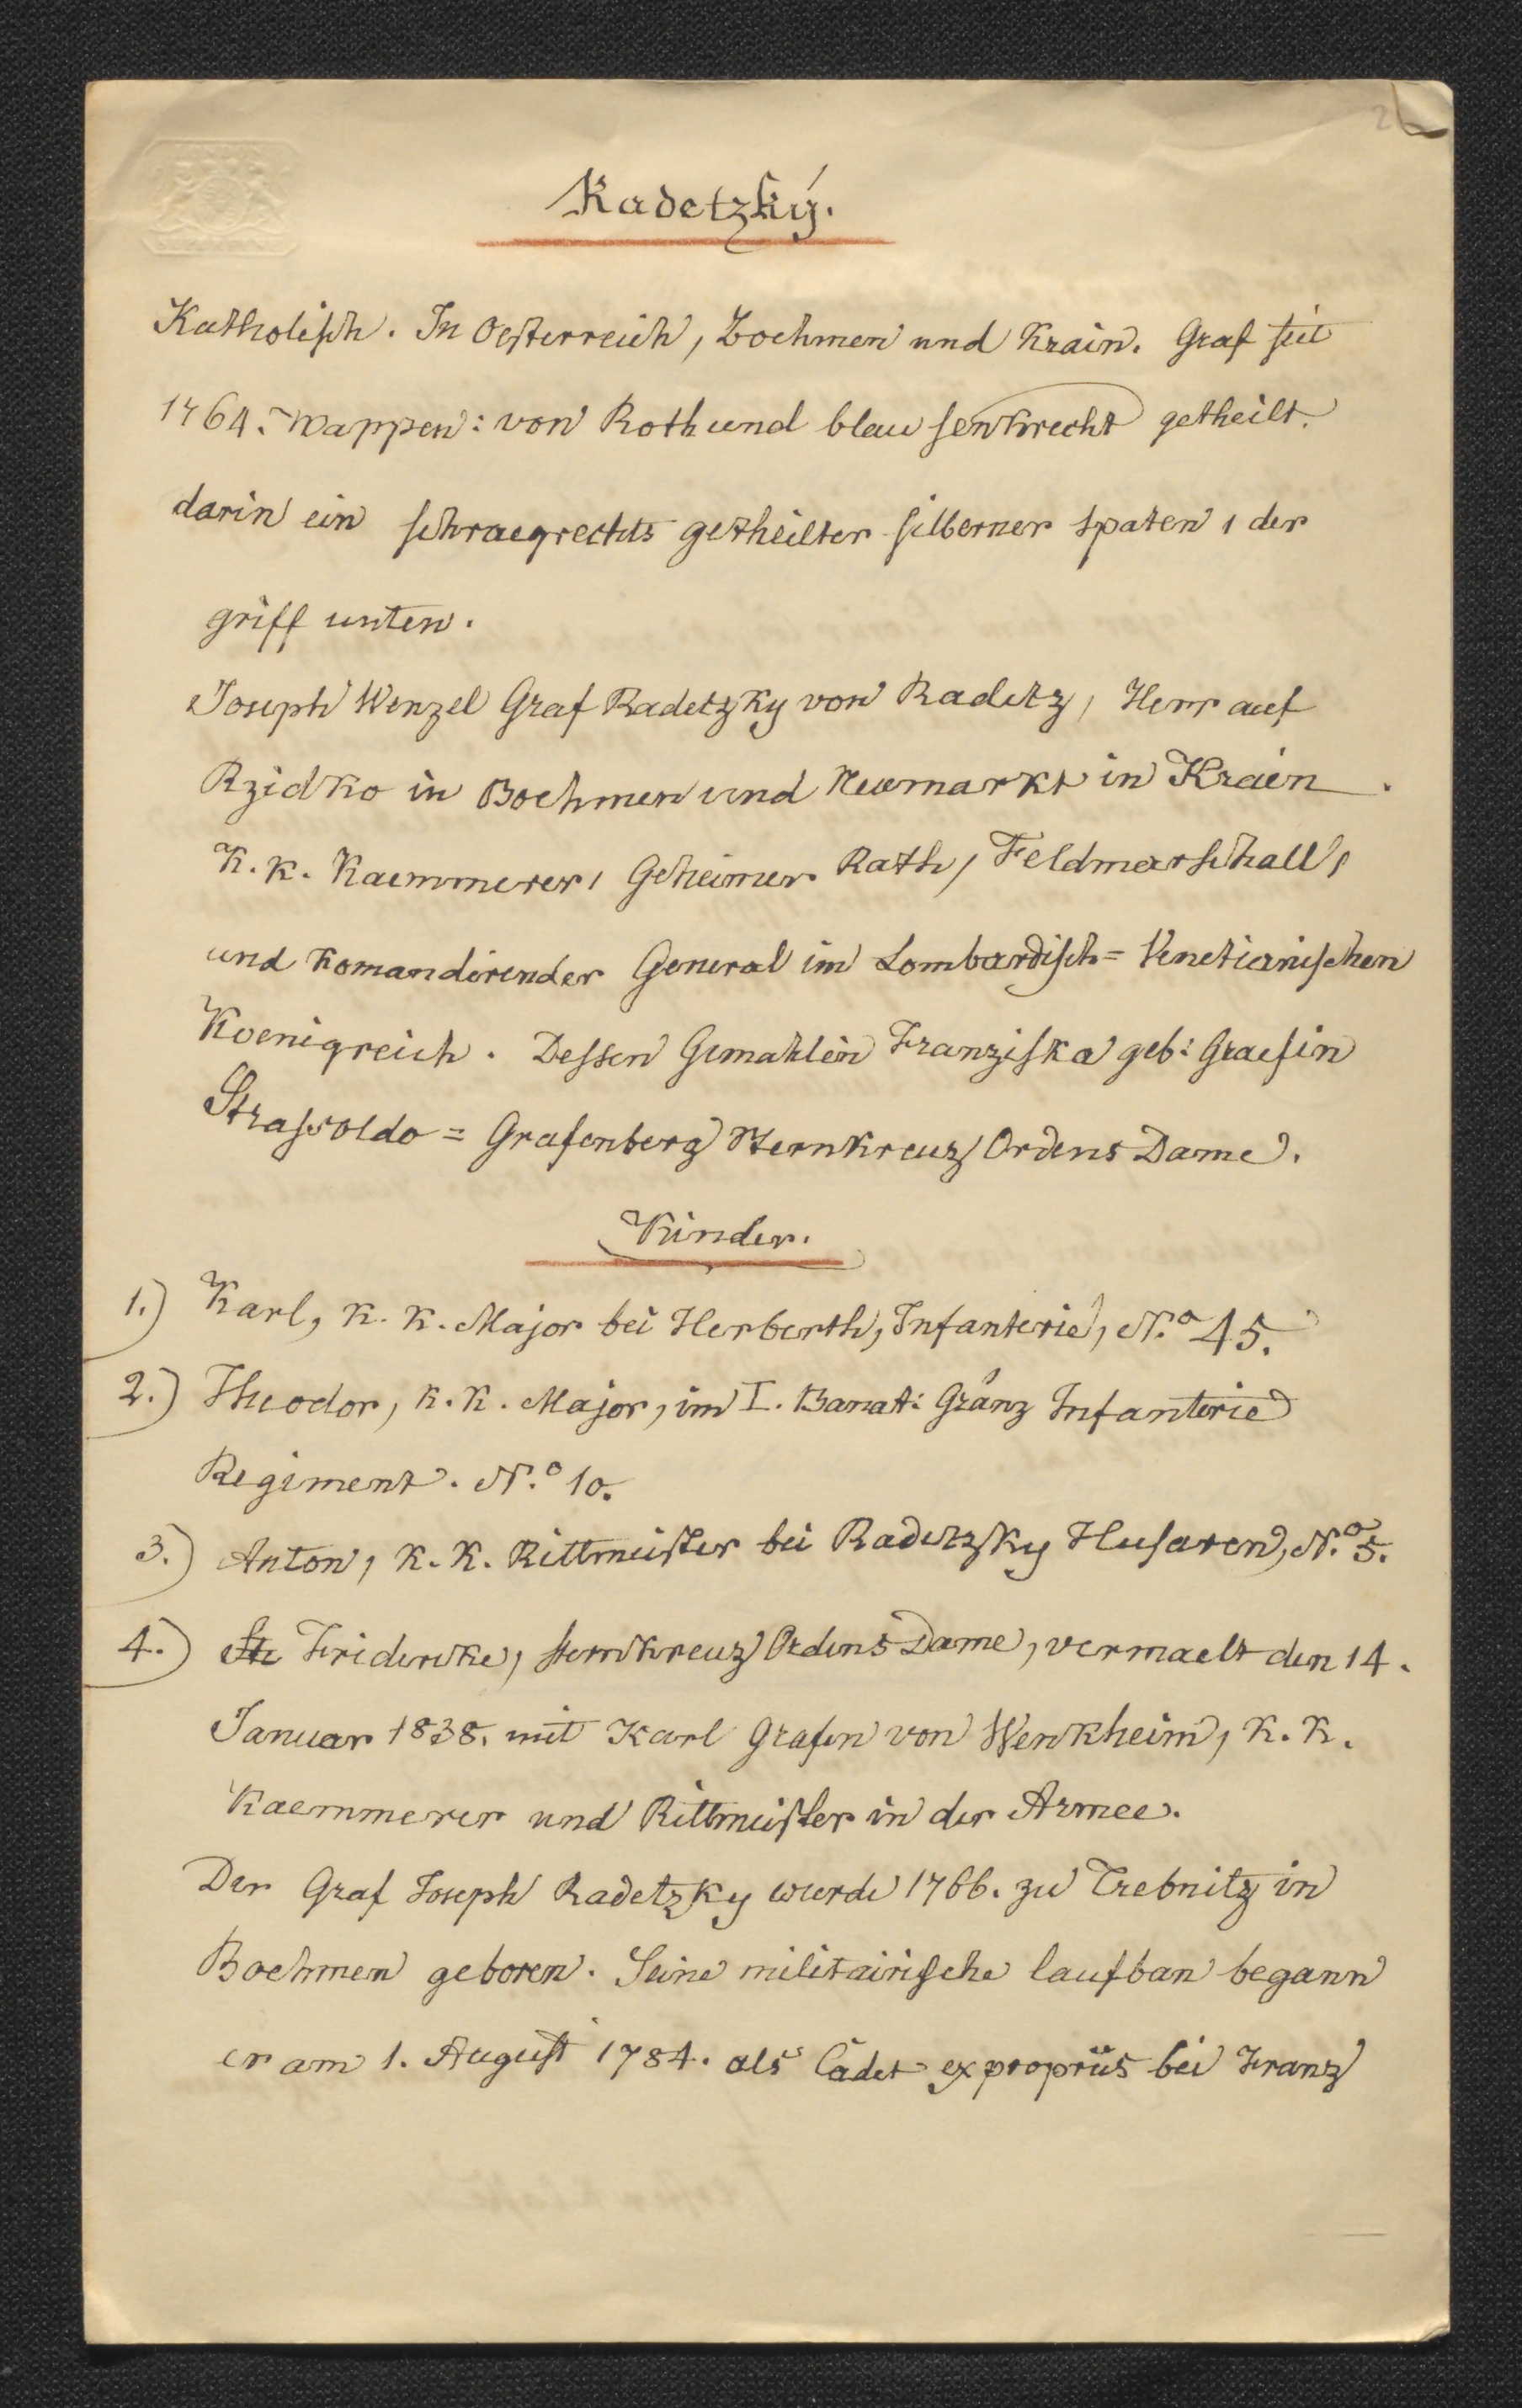 2
Radetzký.
Katholisch. In Oesterreich, Boehmen und Krain. Graf seit
1764. Wappen: von Roth und blau senkrecht getheilt.
darin ein schraegrechts getheilter silberner Spaten, der
griff unten.
Joseph Wenzel Graf Radetzky von Radetz, Herr auf
Rzidko in Boehmen und Neumarkt in Krain.
K. K. Kaemmerer, Geheimer Rath, Feldmarschall,
und Komandirender General im Lombardisch=Venetianischen
Koenigreich. Dessen Gemahlin Franziska geb: Graefin
Strassoldo=Grafenberg Sternkreuz Ordens Dame.
Kinder.
1.) Karl, K. K. Major bei Herberth, Infanterie, N.o 45.
2.) Theodor, K. K. Major, im I. Banat: Gränz Infanterie
Regiment. N.o 10.
3.) Anton, K. K. Rittmeister bei Radetzky Husaren, N.o 5.
4.) Friderike, Sternkreuz Ordens Dame, vermaelt den 14.
Januar 1838. mit Karl Grafen von Wenkheim, K. K.
Kaemmerer und Rittmeister in der Armee.
Der Graf Joseph Radetzky wurde 1766. zu Trebnitz in
Boehmen geboren. Seine militairische laufban begann
er am 1. August 1784. als Cadet ex propriis bei Franz